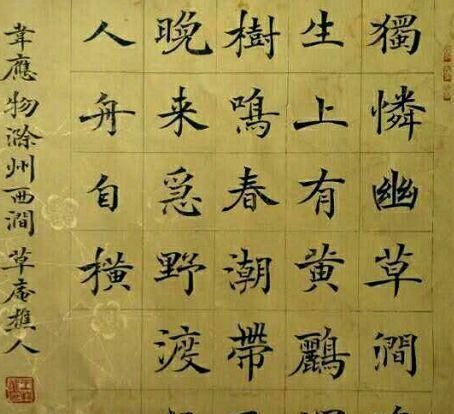 獨憐幽草澗
生上有黄鸝
樹鳴春潮帶
晚来急野渡
人舟自橫
韋應物滁州西澗 草庵樵人